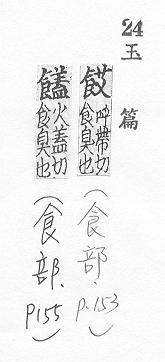 24
玉篇
餀 呼帶切
食臭也
(食部, p.153)
饚 火蓋切
食臭也
(食部, p155)